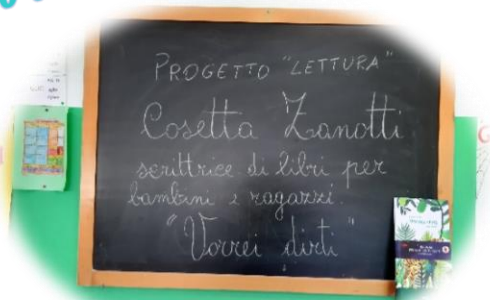 PROGETTO "LETTURA"
Cosetta Zanotti
scrittrice di libri per
bambini e ragazzi.
"Vorrei dirti"